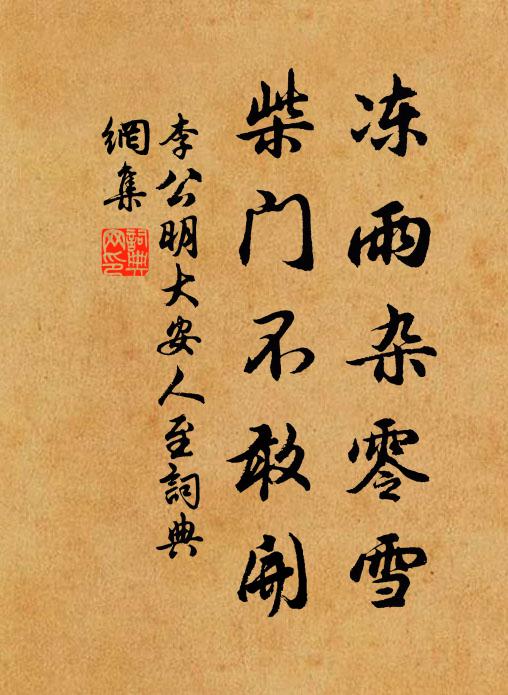 冻雨杂零雪
柴门不敢開
李公明大安人至詞典
網集
詞典網印